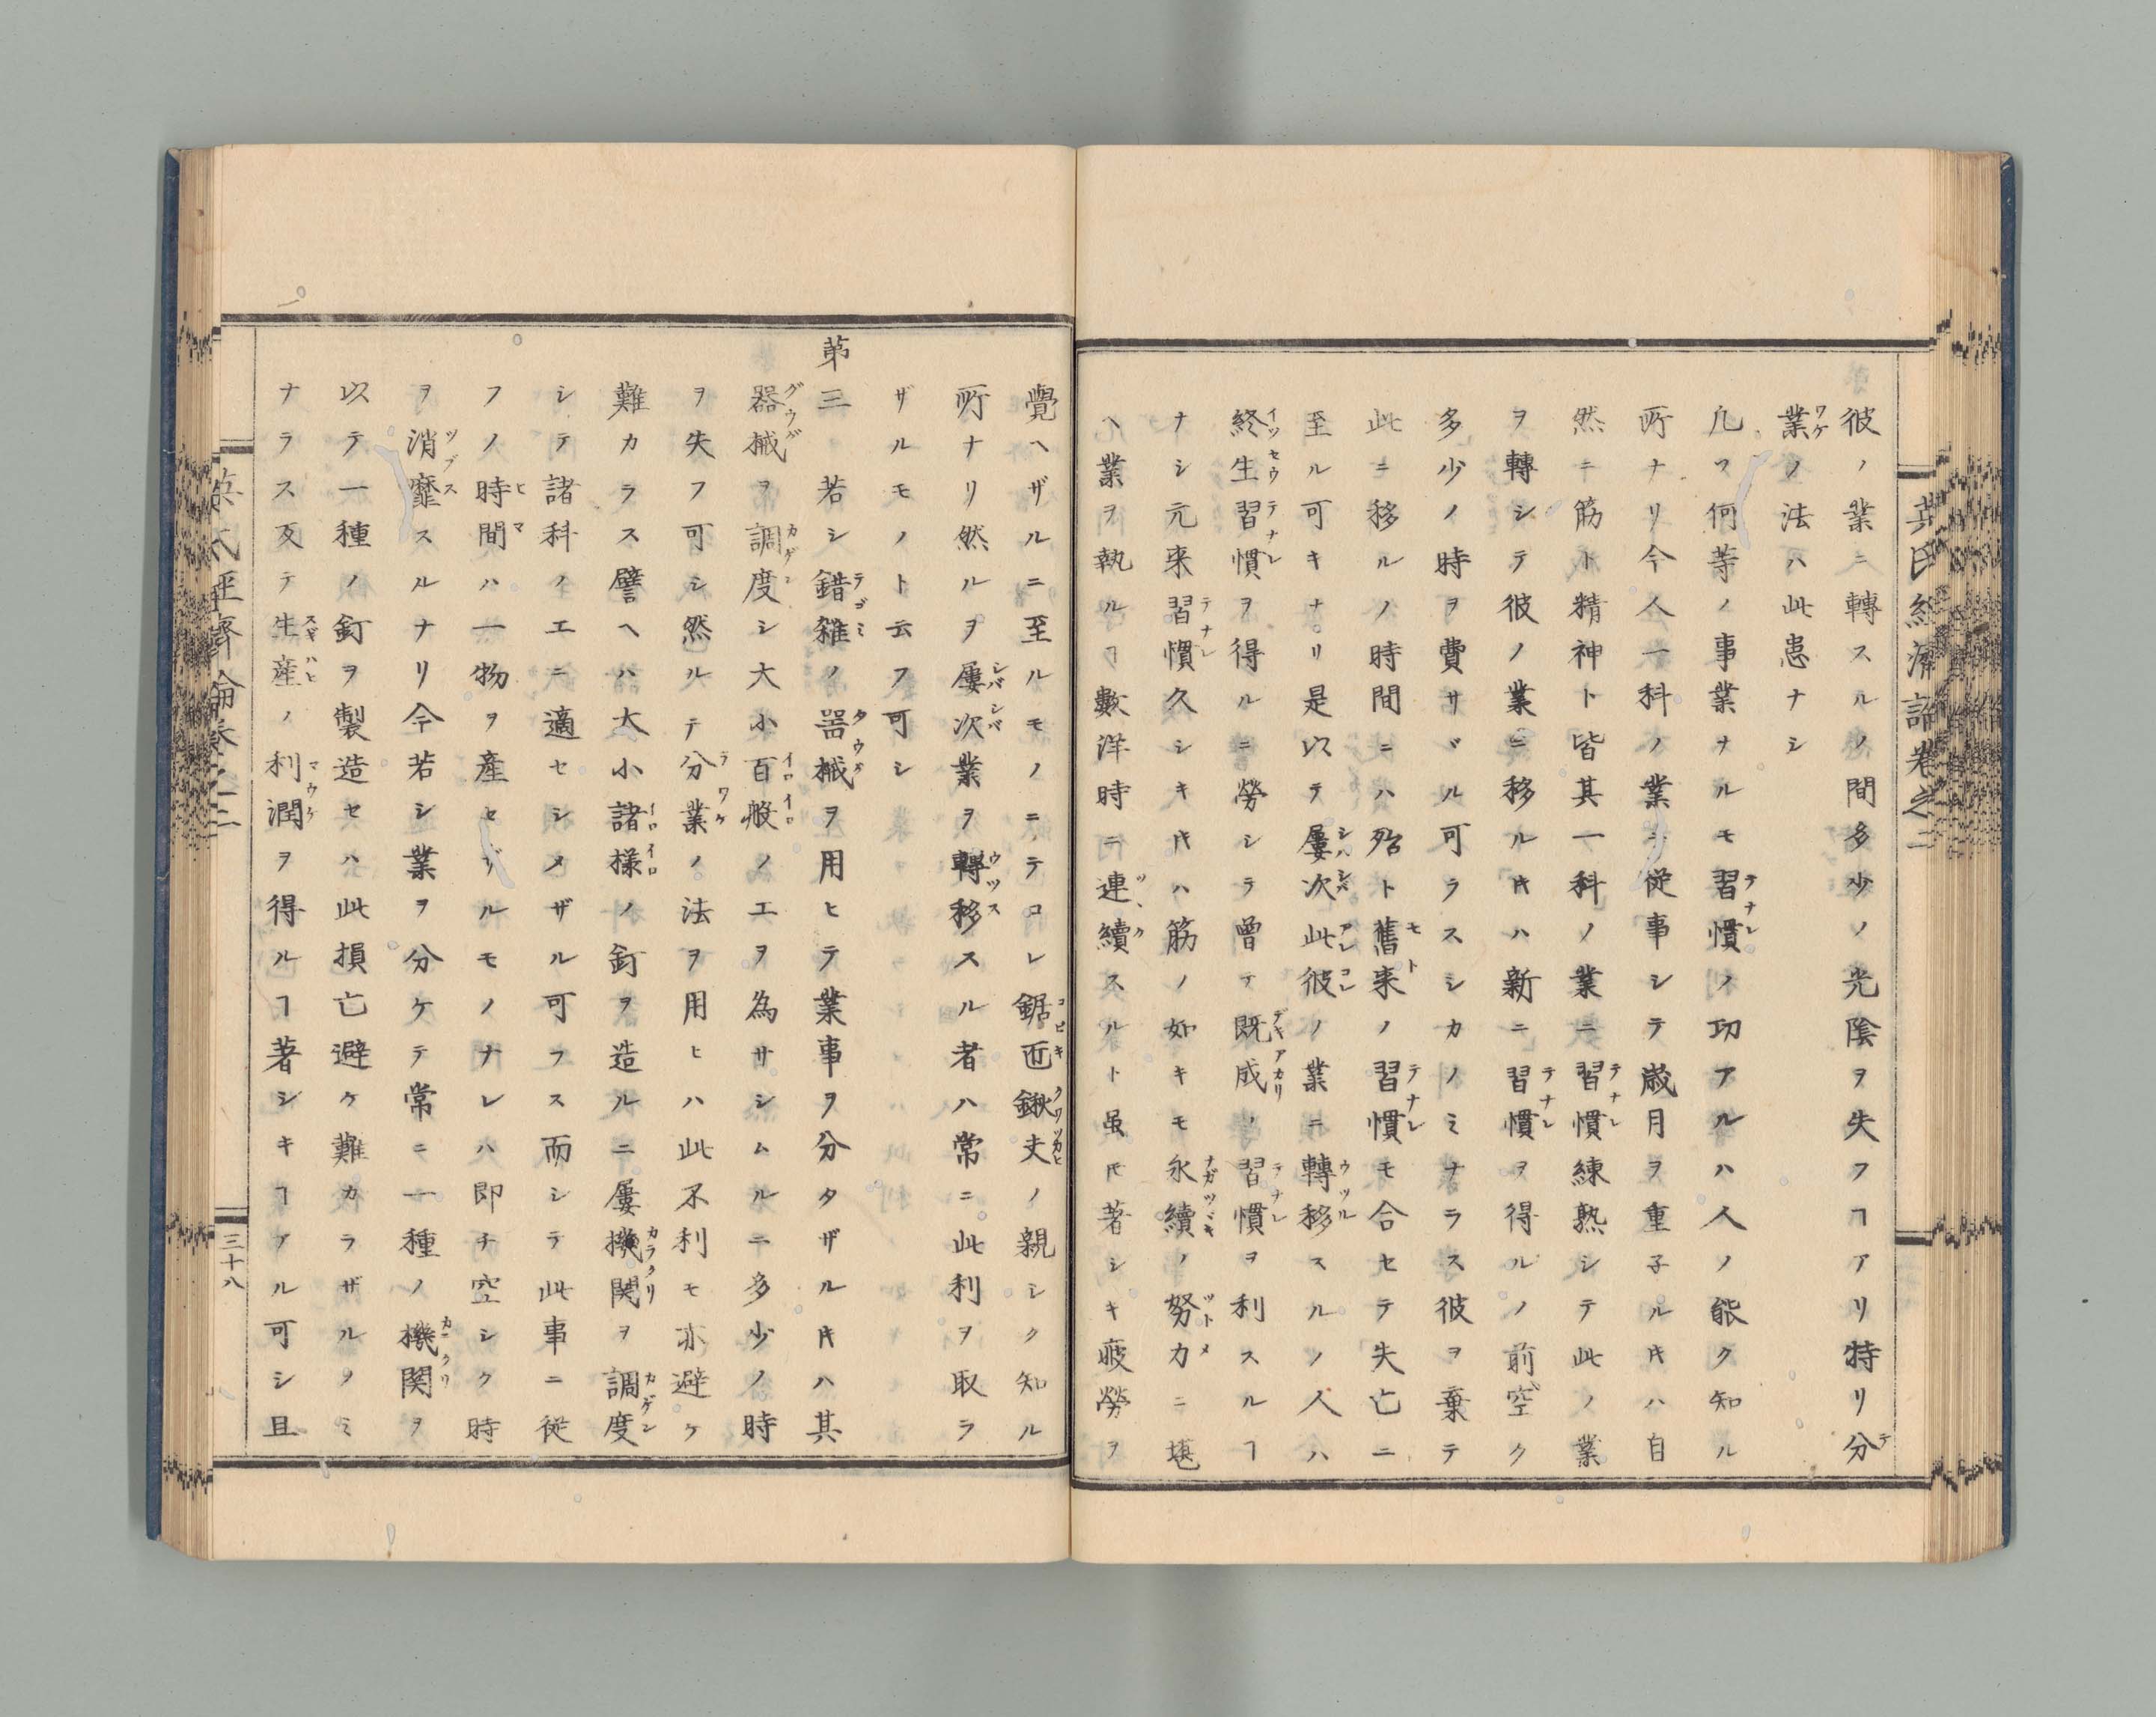 彼ノ業ニ轉スルノ間多少ノ光陰ヲ失フヿアリ特リ分
業ノ法ハ此患ナシ
凡ソ何等ノ事業ナルモ習慣ノ功アルハ人ノ能ク知ル
所ナリ今人一科ノ業ニ從事シテ歳月ヲ重子ルキハ自
然ニ筋ト精神ト皆其一科ノ業ニ習慣練熟シテ此ノ業
ヲ轉シテ彼ノ業ニ移ルキハ新ニ習慣ヲ得ルノ前空ク
多少ノ時ヲ費サヾル可ラスシカノミナラス彼ヲ棄テ
此ニ移ルノ時間ニハ殆ト舊来ノ習慣モ合セテ失亡ニ
至ル可キナリ是以テ屢次此彼ノ業ニ轉移スルノ人ハ
終生習慣ヲ得ルニ勞シテ曽テ既成ノ習慣ヲ利スルヿ
ナシ元来習慣久シキキハ筋ノ如キモ永續ノ努力ニ堪
ヘ業ヲ執ルヿ數洋時ニ連續スルト虽𪜈著シキ疲勞ヲ
覺ヘザルニ至ルモノニテコレ鋸匠鍬夫ノ親シク知ル
所ナリ然ルヲ屢次業ヲ轉移スル者ハ常ニ此利ヲ取ラ
ザルモノト云フ可シ
第三 若シ錯雑ノ噐械ヲ用ヒテ業事ヲ分タザルキハ其
器械ヲ調度シ大小百般ノエヲ為サシムルニ多少ノ時
ヲ失フ可シ然ルテ分業ノ法ヲ用ヒハ此不利モ亦避ケ
難カラス譬ヘハ大小諸様ノ釘ヲ造ルニ屢機関ヲ調度
シテ諸科ノエニ適セシメザル可フス而シテ此事ニ從
フノ時間ハ一物ヲ産セザルモノナレハ即チ空シク時
ヲ消靡スルナリ今若シ業ヲ分ケテ常ニ一種ノ機関ヲ
以テ一種ノ釘ヲ製造セハ此損亡避ケ難カラザルノミ
ナラス反テ生産ノ利潤ヲ得ルヿ著シキヿアル可シ且
三十八